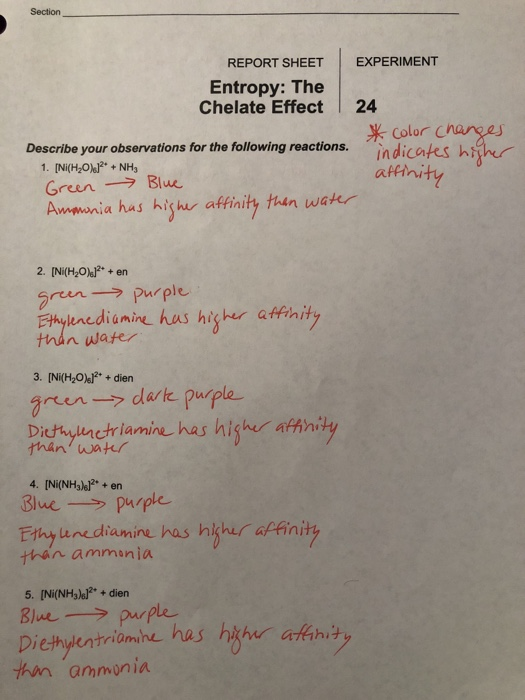 Section
REPORT SHEET
EXPERIMENT
Entropy: The
Chelate Effect
24
* color changes
indicates higher
affinity
Describe your observations for the following reactions.
1. [Ni(H₂O)₆]²⁺ + NH₃
Green → Blue
Ammonia has higher affinity than water
2. [Ni(H₂O)₆]²⁺ + en
green → purple
Ethylenediamine has higher affinity
than water
3. [Ni(H₂O)₆]²⁺ + dien
green → dark purple
Diethylenetriamine has higher affinity
than water
4. [Ni(NH₃)₆]²⁺ + en
Blue → purple
Ethylenediamine has higher affinity
than ammonia
5. [Ni(NH₃)₆]²⁺ + dien
Blue → purple
Diethylentriamine has higher affinity
than ammonia